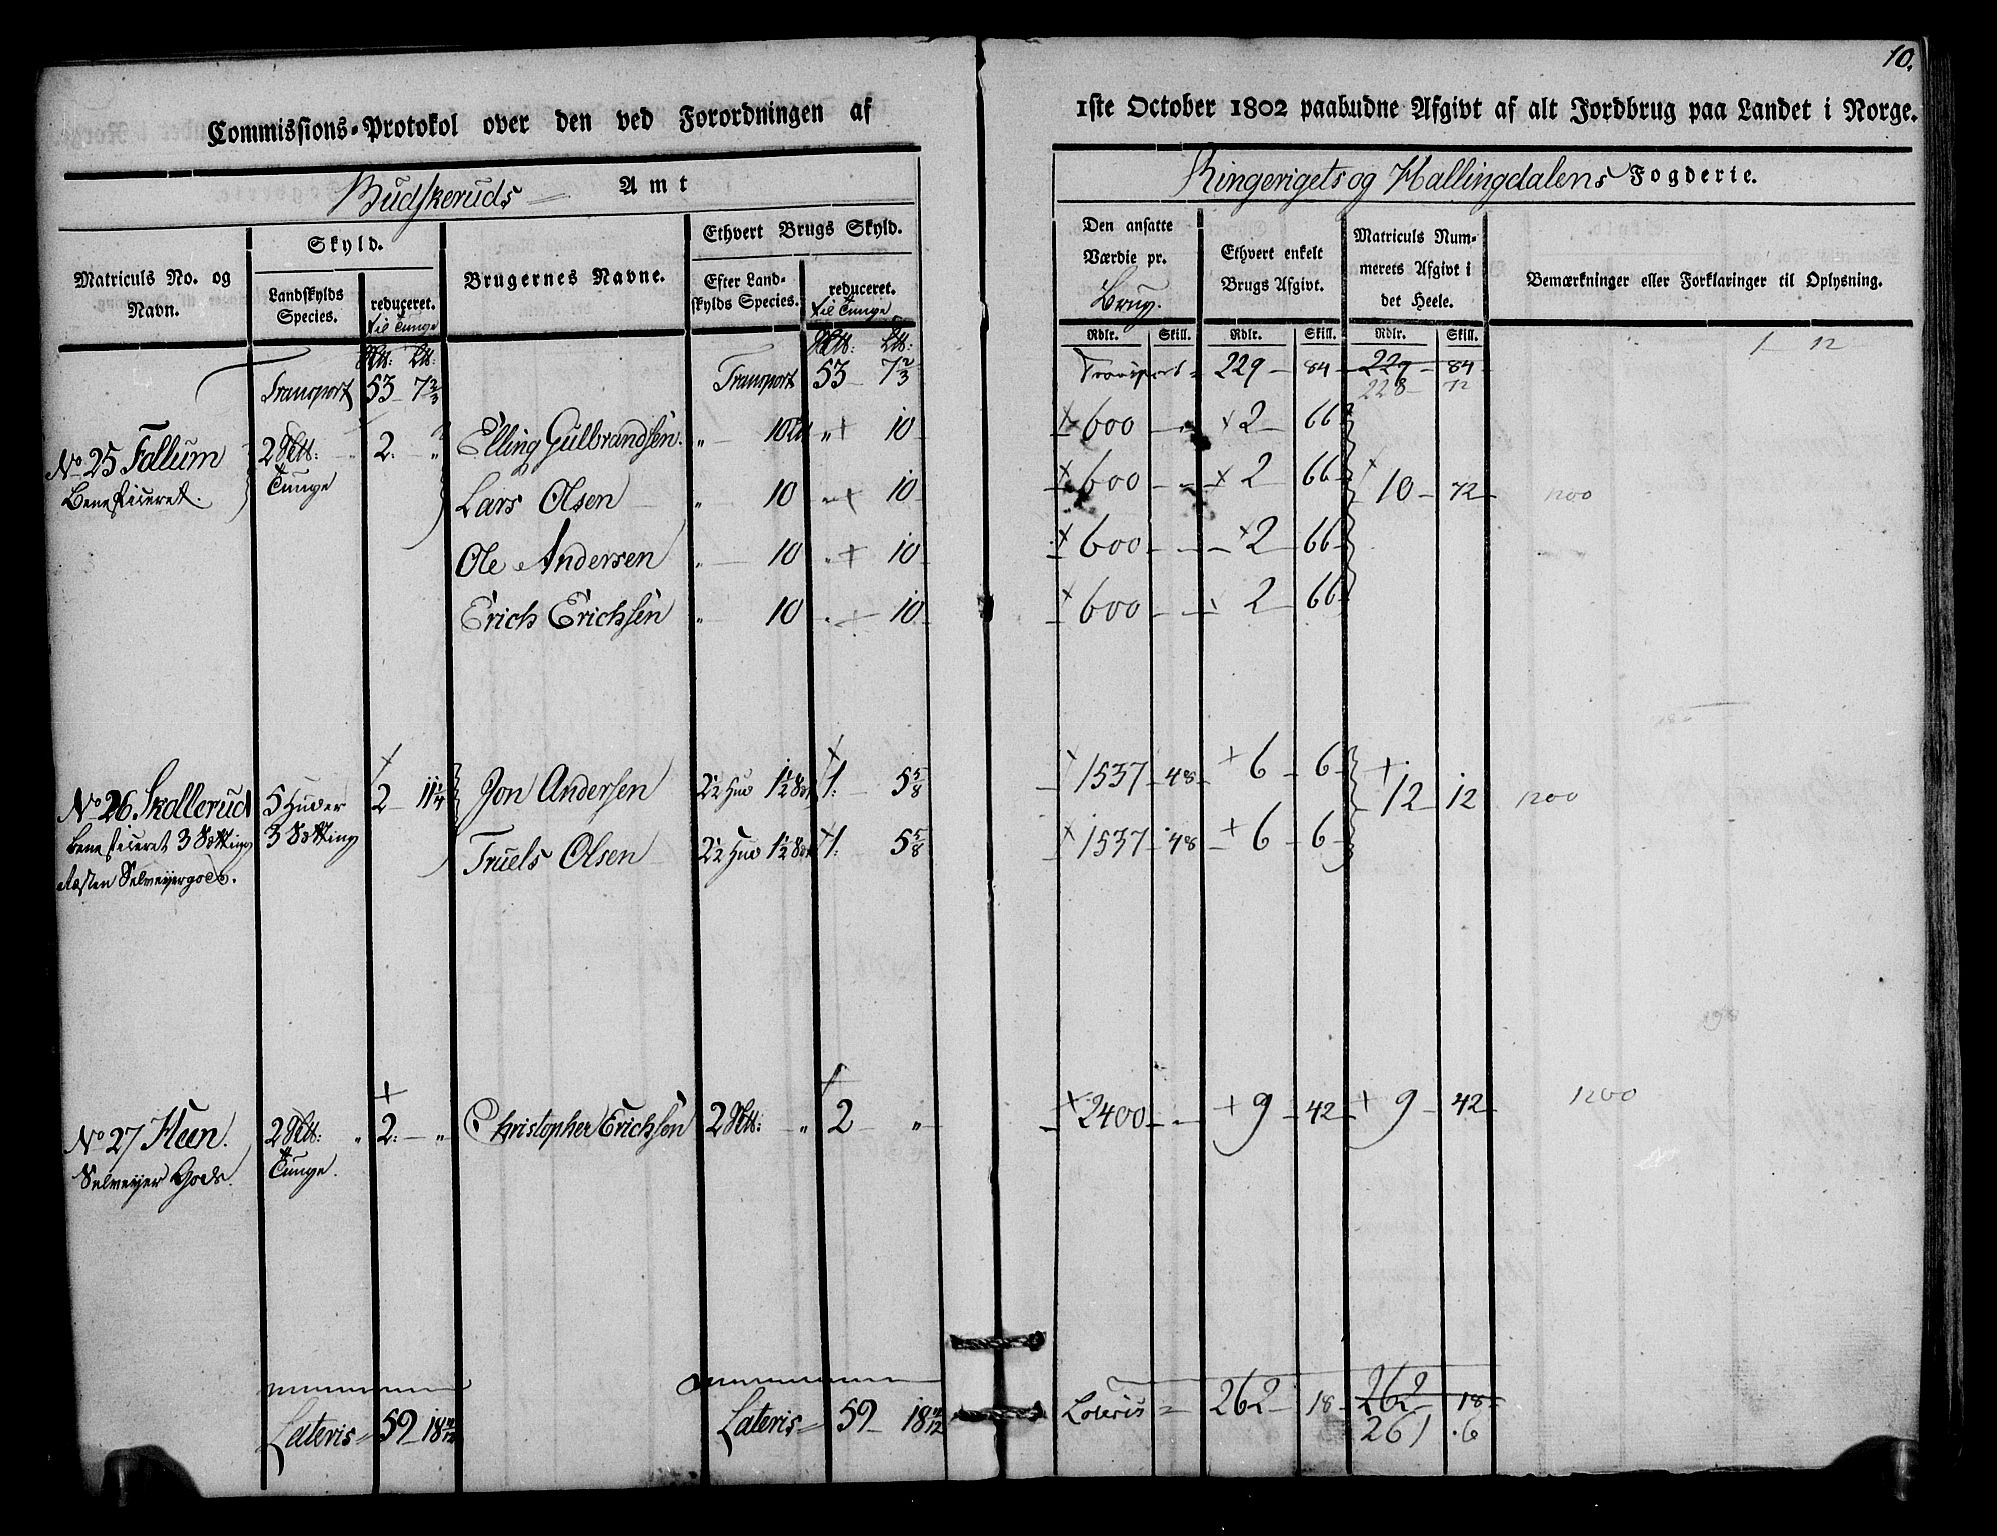 10.
Commissions-Protokol over den ved Forordningen af 1ste October 1802 paabudne Afgivt af alt Jordbrug paa Landet i Norge.
Budskeruds Amt Ringerigets og Hallingdalens Fogderie.
Matriculs No. og Navn. Skyld. Brugernes Navne. Ethvert Brugs Skyld. Den ansatte Værdie pr. Brug. Ethvert enkelt Brugs Afgivt. Matriculs Nummerets Afgivt i det Heele. Bemærkninger eller Forklaringer til Oplysning.
Landskylds Species. reduceret. til Tunge Efter Landskylds Species. reduceret. til Tunge
Rdlr. Skill. Rdlr. Skill. Rdlr. Skill.
1 12
Transport 53 7 2/3 Transport 53 7 2/3 Transport 229 84 229 84
228 72
No 25 Follum 2 2 " Elling Gulbrandsen " 10 " + 10 + 600 + 2 66
Beneficeret. Tunge Lars Olsen " 10 " + 10 + 600 + 2 66 + 10 72 1200
Ole Andersen " 10 " + 10 + 600 + 2 66
Erich Erichsen " 10 " + 10 + 600 + 2 66
No 26 Skollerud 5 Huder 2 11 1/4 Jon Andersen 2 1/2 Hud 1 1/2 1 5 5/8 + 1537 48 + 6 6 + 12 12 1200
beneficeret 3 Sætting 3 Sætting Truels Olsen 2 1/2 Hud 1 1/2 1 5 5/8 + 1537 48 + 6 6
Resten Selveyergods.
No 27 Heen. 2 " 2 " Christopher Erichsen 2 " 2 " + 2400 + 9 42 + 9 42 1200
Selveyer Gods. Tunge.
Lateris 59 18 11/12 Lateris 59 18 11/12 Lateris 262 18 262 18
261 6